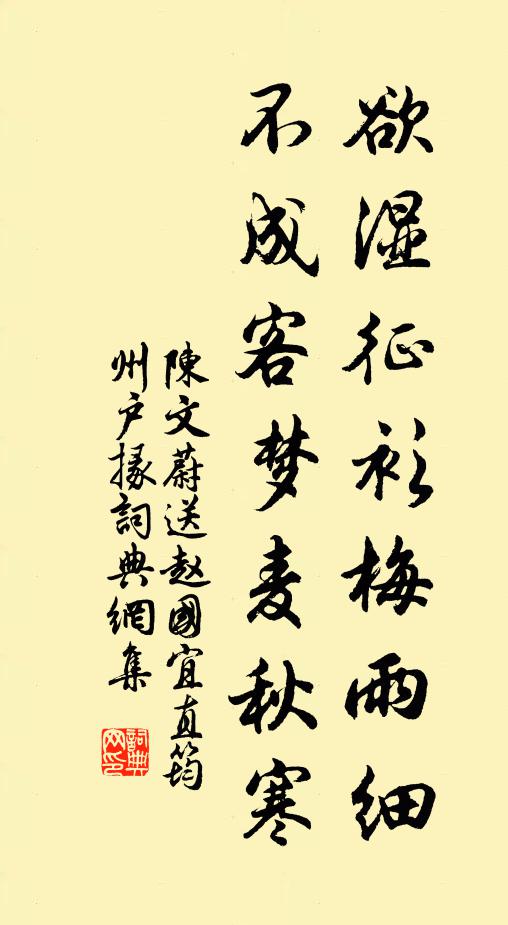 欲湿征衫梅雨细
不成客梦麦秋寒
陳文蔚送赵國宜直筠
州户掾詞典網集
詞典
网印